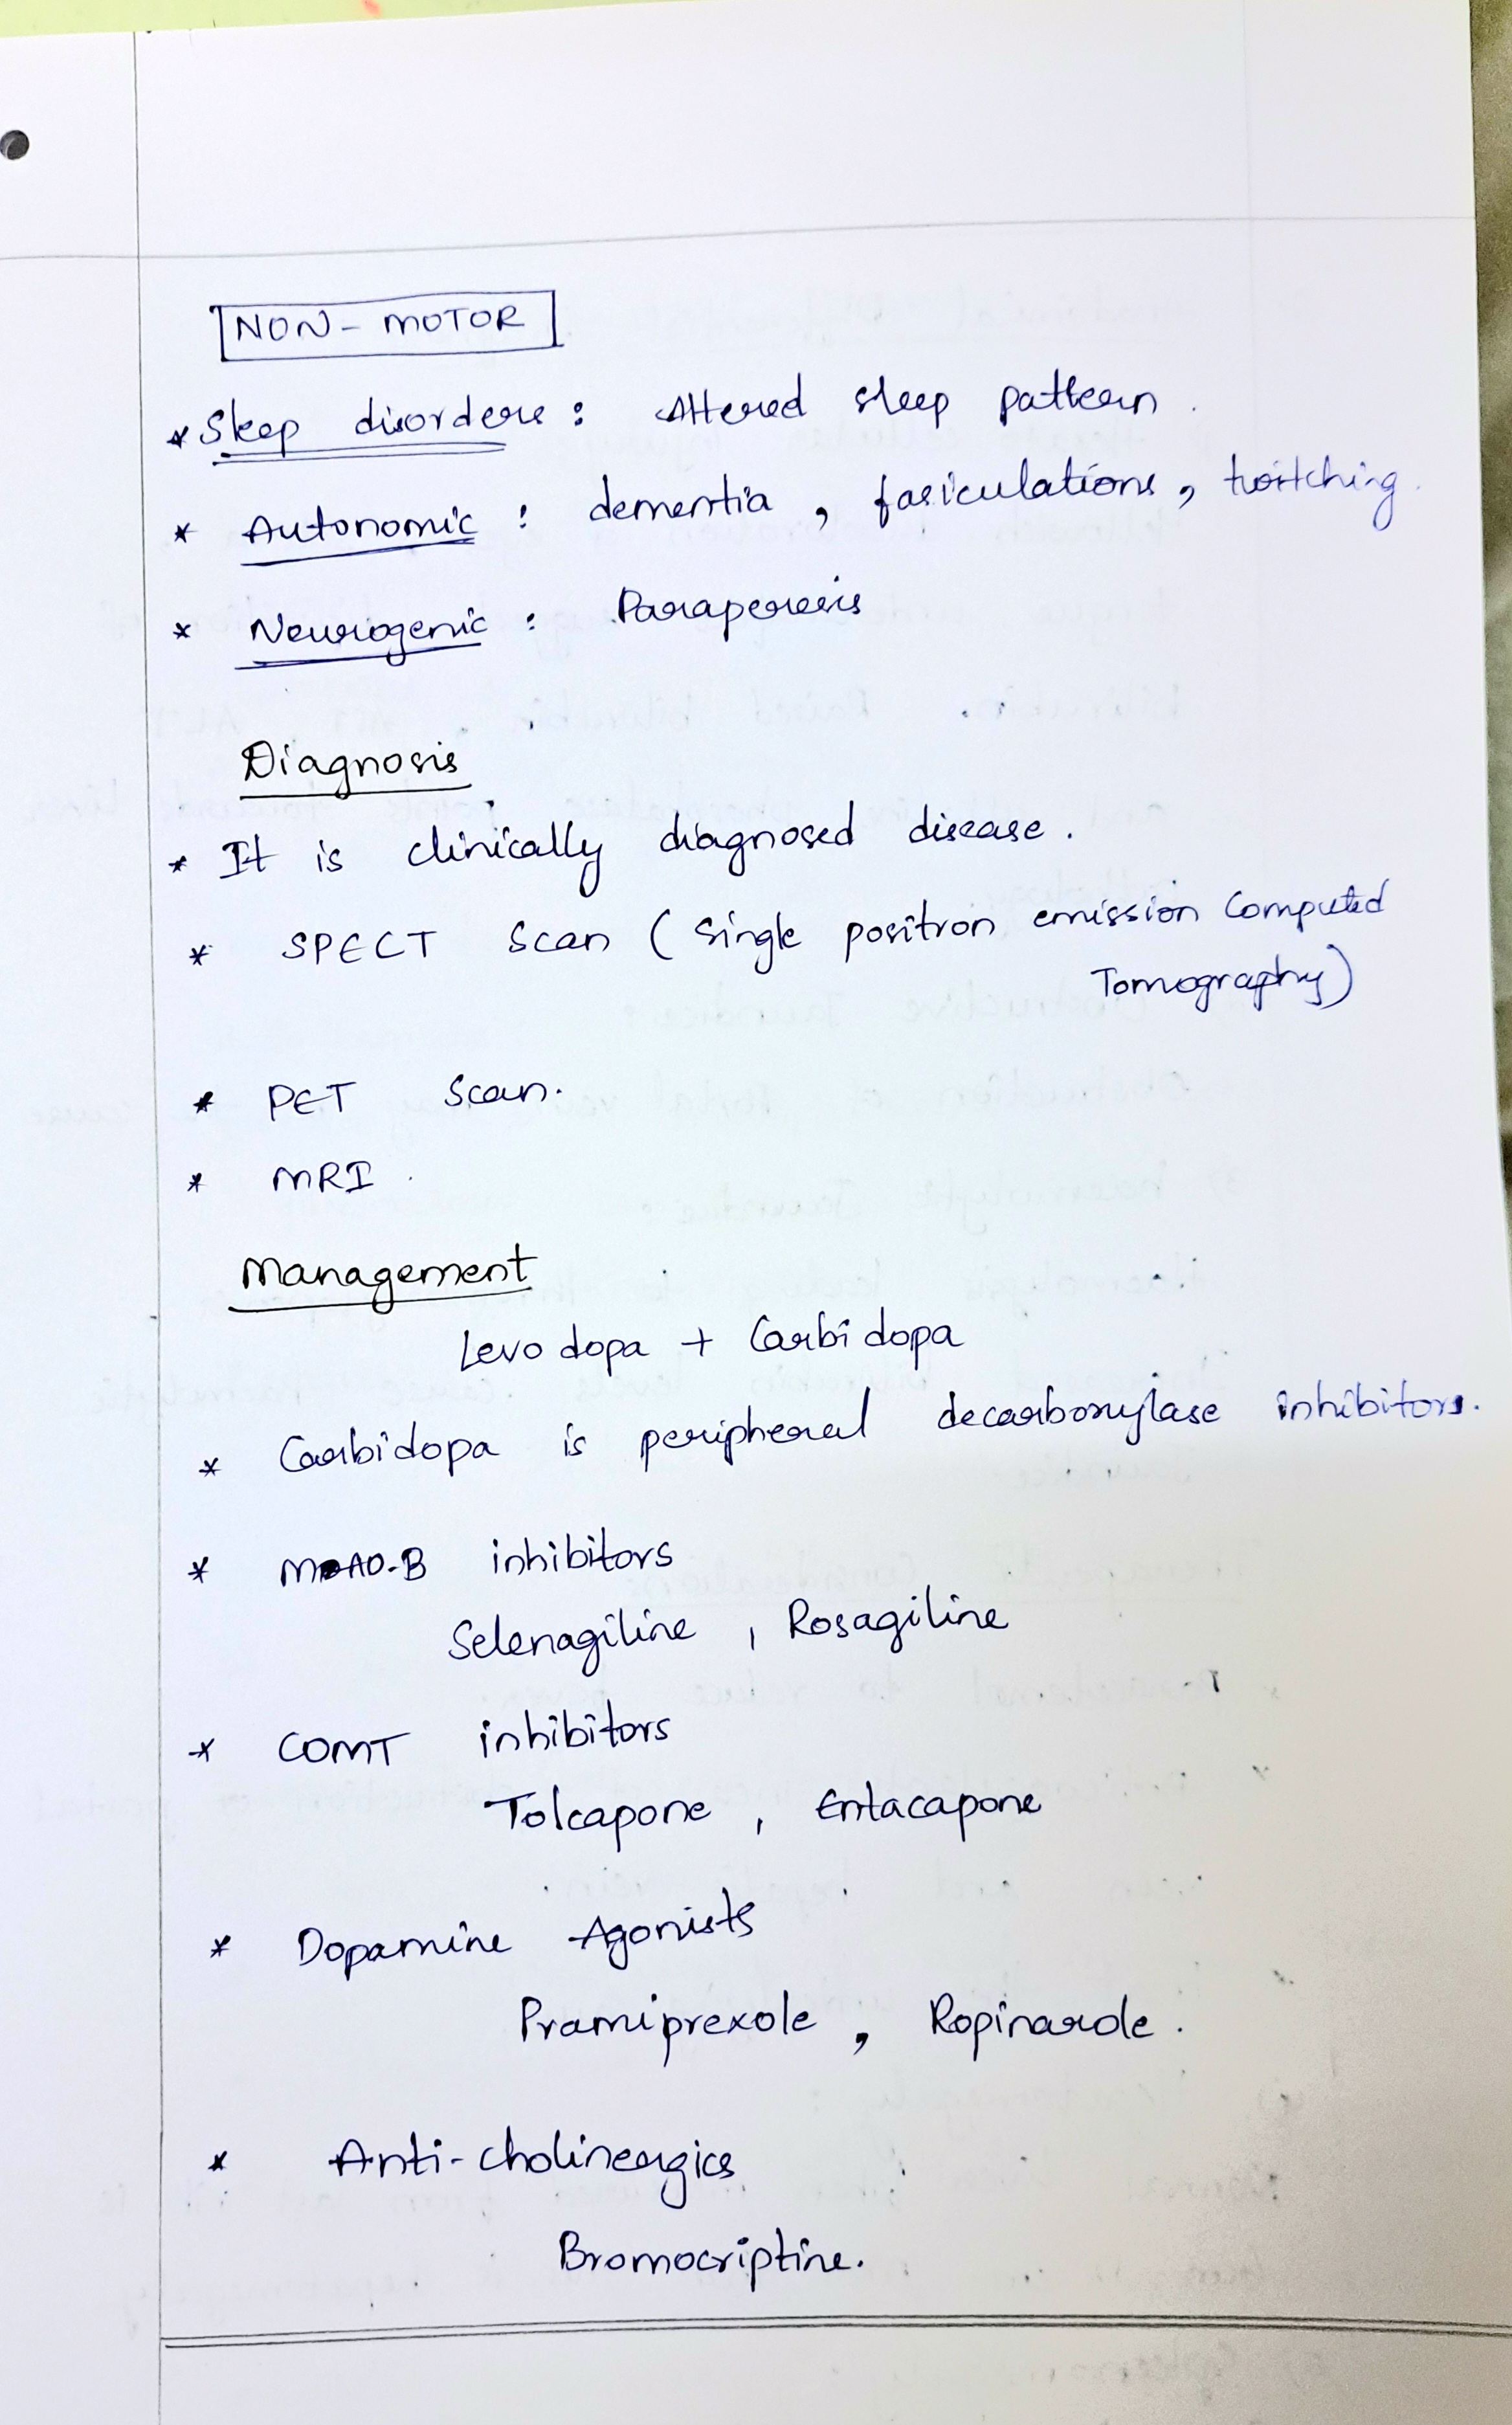 NON - MOTOR
* Sleep disorders : Altered sleep pattern .
* Autonomic : dementia , fasiculations , twitching .
* Neurogenic : Paraperesis
Diagnosis
* It is clinically diagnosed disease .
* SPECT Scan ( Single positron emission Computed
Tomography )
* PET Scan .
* MRI .
Management
Levo dopa + Carbi dopa
* Carbidopa is peripheral decarboxylase inhibitors .
* MAO-B inhibitors
Selenagiline , Rosagiline
* COMT inhibitors
Tolcapone , Entacapone
* Dopamine Agonists
Pramiprexole , Ropinarole .
* Anti-cholinergics
Bromocriptine .